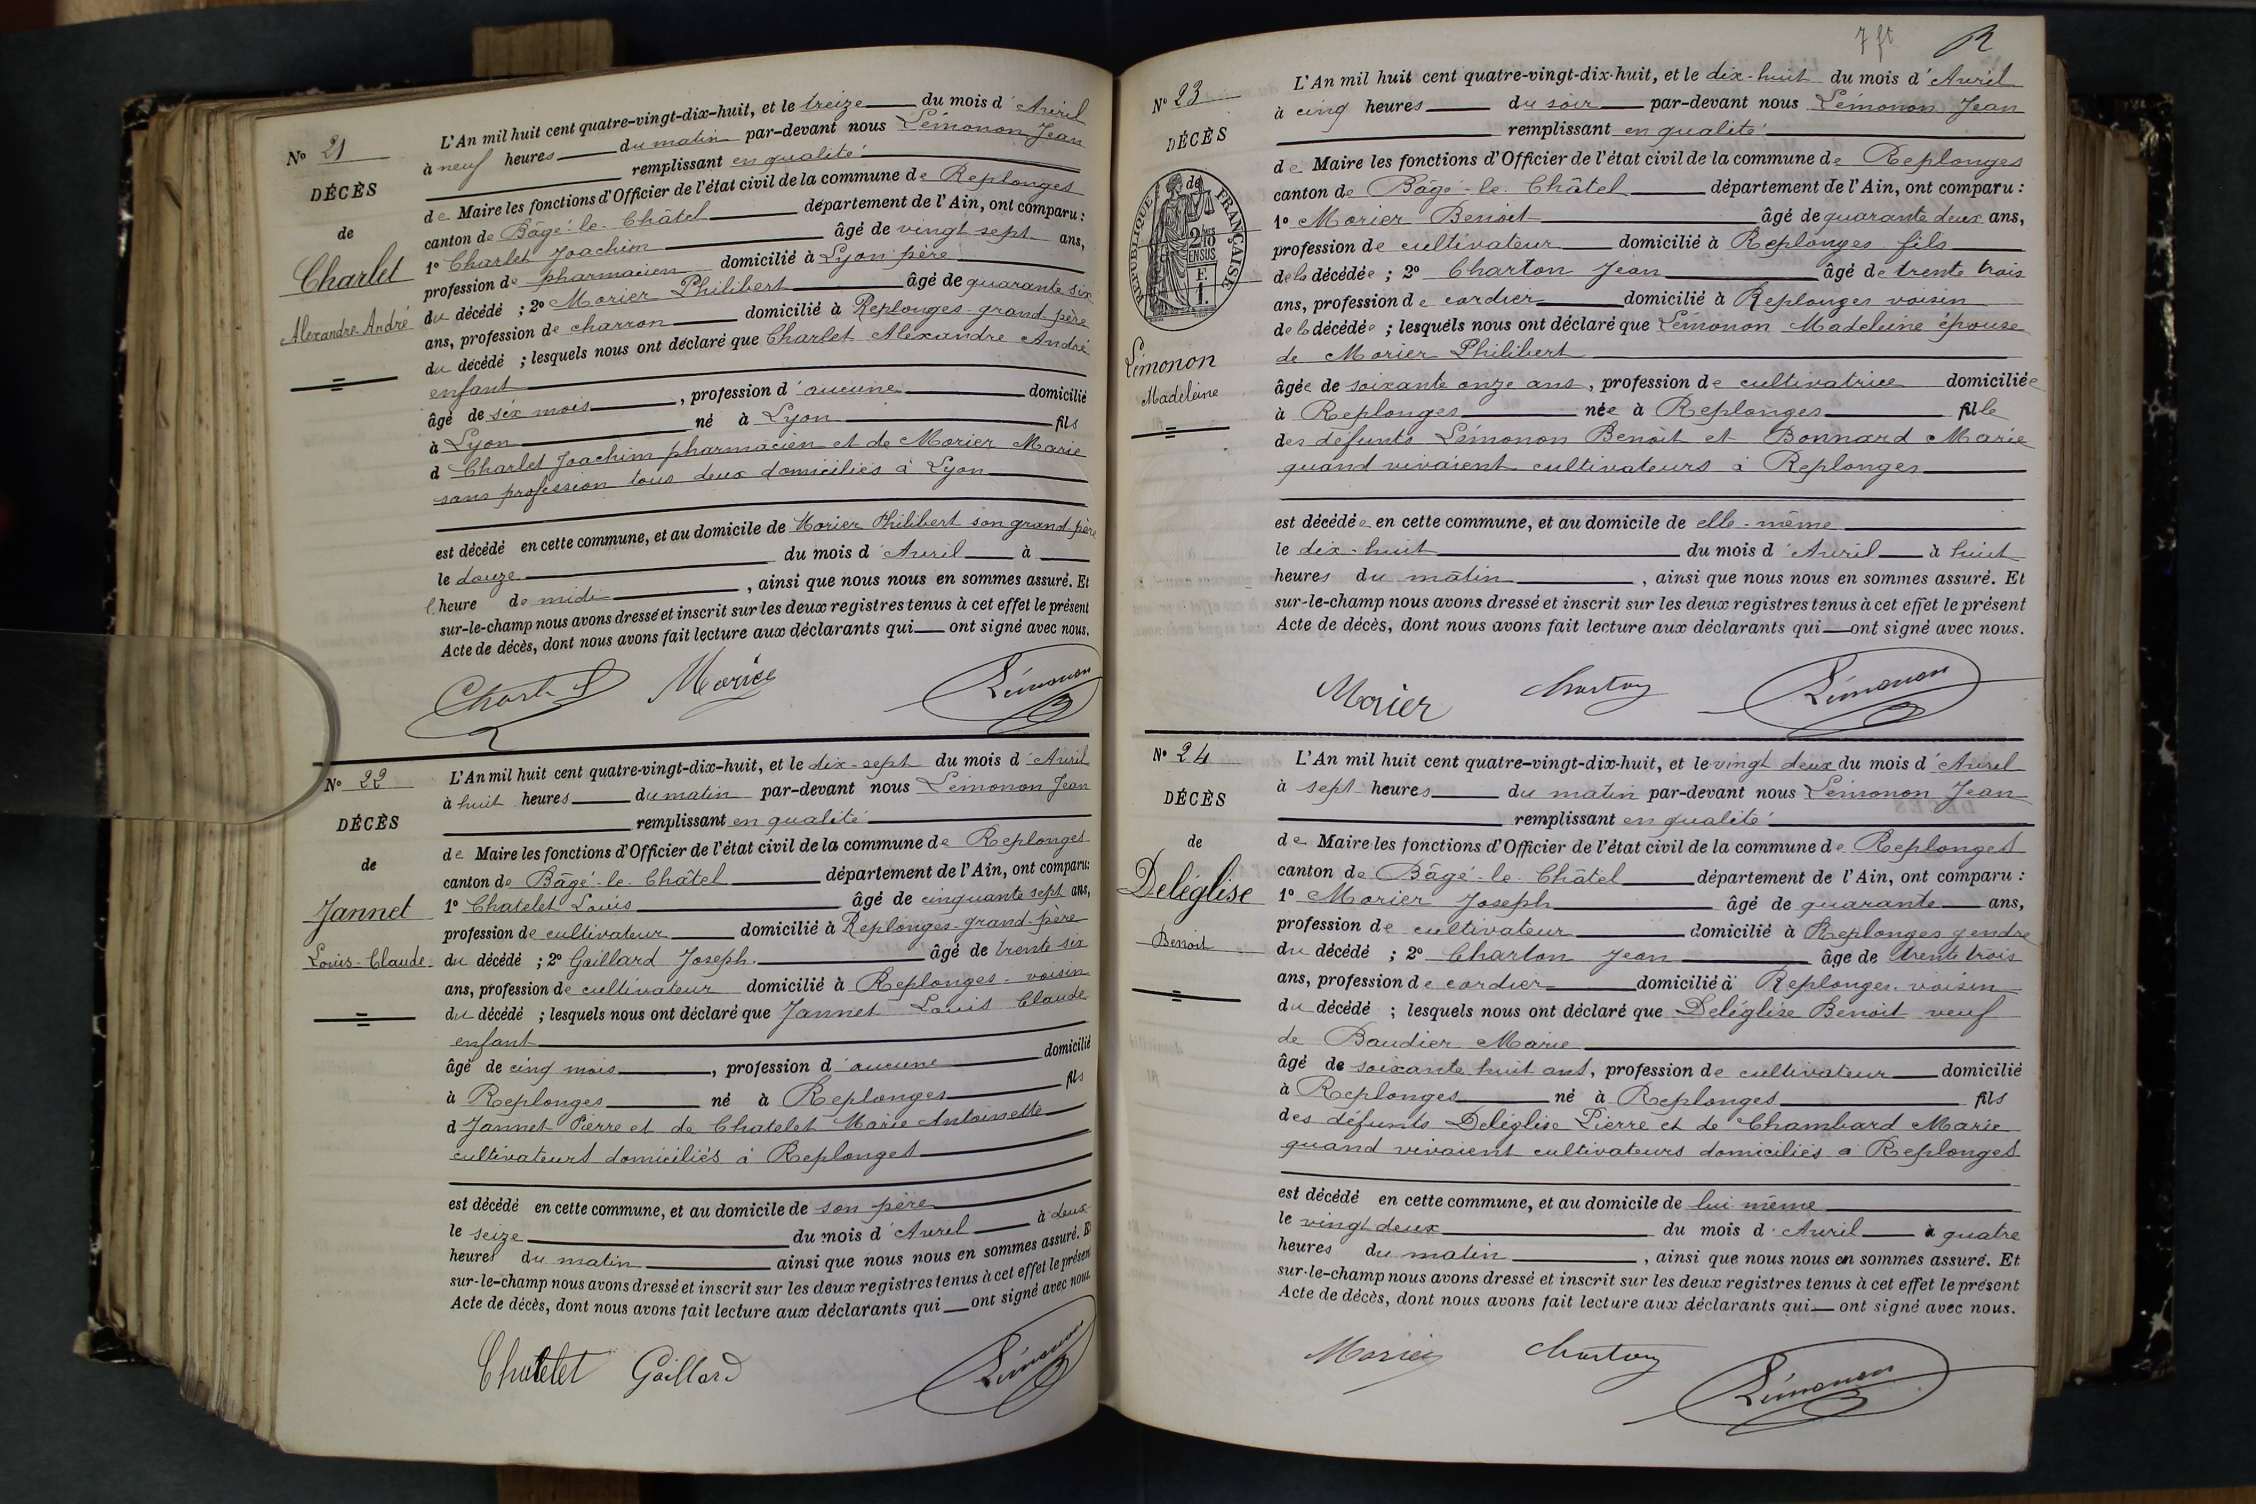 N° 21
DÉCÈS
de
Charlet
Alexandre André
L'An mil huit cent quatre-vingt-dix-huit, et le treize du mois d'Avril
à neuf heures du matin par-devant nous Lémonon Jean
remplissant en qualité
de Maire les fonctions d'Officier de l'état civil de la commune de Replonges
canton de Bâgé-le-Châtel département de l'Ain, ont comparu :
1° Charlet Joachim âgé de vingt sept ans,
profession de pharmacien domicilié à Lyon père
du décédé ; 2° Morier Philibert âgé de quarante six
ans, profession de charron domicilié à Replonges grand-père
du décédé ; lesquels nous ont déclaré que Charlet Alexandre André
enfant
âgé de six mois, profession d'aucune domicilié
à Lyon né à Lyon fils
d Charlet Joachim pharmacien et de Morier Marie
sans profession tous deux domiciliés à Lyon
est décédé en cette commune, et au domicile de Morier Philibert son grand-père
le douze du mois d'Avril à
l'heure de midi, ainsi que nous nous en sommes assuré. Et
sur-le-champ nous avons dressé et inscrit sur les deux registres tenus à cet effet le présent
Acte de décès, dont nous avons fait lecture aux déclarants qui ont signé avec nous.
Charlet Morier Lémonon
N° 22
DÉCÈS
de
Jannet
Louis-Claude
L'An mil huit cent quatre-vingt-dix-huit, et le dix-sept du mois d'Avril
à huit heures du matin par-devant nous Lémonon Jean
remplissant en qualité
de Maire les fonctions d'Officier de l'état civil de la commune de Replonges
canton de Bâgé-le-Châtel département de l'Ain, ont comparu :
1° Chatelet Louis âgé de cinquante sept ans,
profession de cultivateur domicilié à Replonges grand-père
du décédé ; 2° Gaillard Joseph âgé de trente six
ans, profession de cultivateur domicilié à Replonges voisin
du décédé ; lesquels nous ont déclaré que Jannet Louis Claude
enfant
âgé de cinq mois, profession d'aucune domicilié
à Replonges né à Replonges fils
d Jannet Pierre et de Chatelet Marie Antoinette
cultivateurs domiciliés à Replonges
est décédé en cette commune, et au domicile de son père
le seize du mois d'Avril à deux
heures du matin ainsi que nous nous en sommes assuré. Et
sur-le-champ nous avons dressé et inscrit sur les deux registres tenus à cet effet le présent
Acte de décès, dont nous avons fait lecture aux déclarants qui ont signé avec nous.
Chatelet Gaillard Lémonon
7 ft
N° 23
DÉCÈS
de
RÉPUBLIQUE FRANÇAISE
2/10 EN SUS
F. 1.
Lémonon
Madeleine
L'An mil huit cent quatre-vingt-dix-huit, et le dix-huit du mois d'Avril
à cinq heures du soir par-devant nous Lémonon Jean
remplissant en qualité
de Maire les fonctions d'Officier de l'état civil de la commune de Replonges
canton de Bâgé-le-Châtel département de l'Ain, ont comparu :
1° Morier Benoit âgé de quarante deux ans,
profession de cultivateur domicilié à Replonges fils
de la décédée ; 2° Charton Jean âgé de trente trois
ans, profession de cordier domicilié à Replonges voisin
de la décédée ; lesquels nous ont déclaré que Lémonon Madeleine épouse
de Morier Philibert
âgée de soixante onze ans, profession de cultivatrice domiciliée
à Replonges née à Replonges fille
des défunts Lémonon Benoit et Bonnard Marie
quand vivaient cultivateurs à Replonges
est décédée en cette commune, et au domicile de elle-même
le dix-huit du mois d'Avril à huit
heures du matin, ainsi que nous nous en sommes assuré. Et
sur-le-champ nous avons dressé et inscrit sur les deux registres tenus à cet effet le présent
Acte de décès, dont nous avons fait lecture aux déclarants qui ont signé avec nous.
Morier Charton Lémonon
N° 24
DÉCÈS
de
Deléglise
Benoit
L'An mil huit cent quatre-vingt-dix-huit, et le vingt deux du mois d'Avril
à sept heures du matin par-devant nous Lémonon Jean
remplissant en qualité
de Maire les fonctions d'Officier de l'état civil de la commune de Replonges
canton de Bâgé-le-Châtel département de l'Ain, ont comparu :
1° Morier Joseph âgé de quarante ans,
profession de cultivateur domicilié à Replonges gendre
du décédé ; 2° Charton Jean âgé de trente trois
ans, profession de cordier domicilié à Replonges voisin
du décédé ; lesquels nous ont déclaré que Deléglise Benoit veuf
de Baudier Marie
âgé de soixante huit ans, profession de cultivateur domicilié
à Replonges né à Replonges fils
des défunts Deléglise Pierre et de Chambard Marie
quand vivaient cultivateurs domiciliés à Replonges
est décédé en cette commune, et au domicile de lui même
le vingt deux du mois d'Avril à quatre
heures du matin, ainsi que nous nous en sommes assuré. Et
sur-le-champ nous avons dressé et inscrit sur les deux registres tenus à cet effet le présent
Acte de décès, dont nous avons fait lecture aux déclarants qui ont signé avec nous.
Morier Charton Lémonon